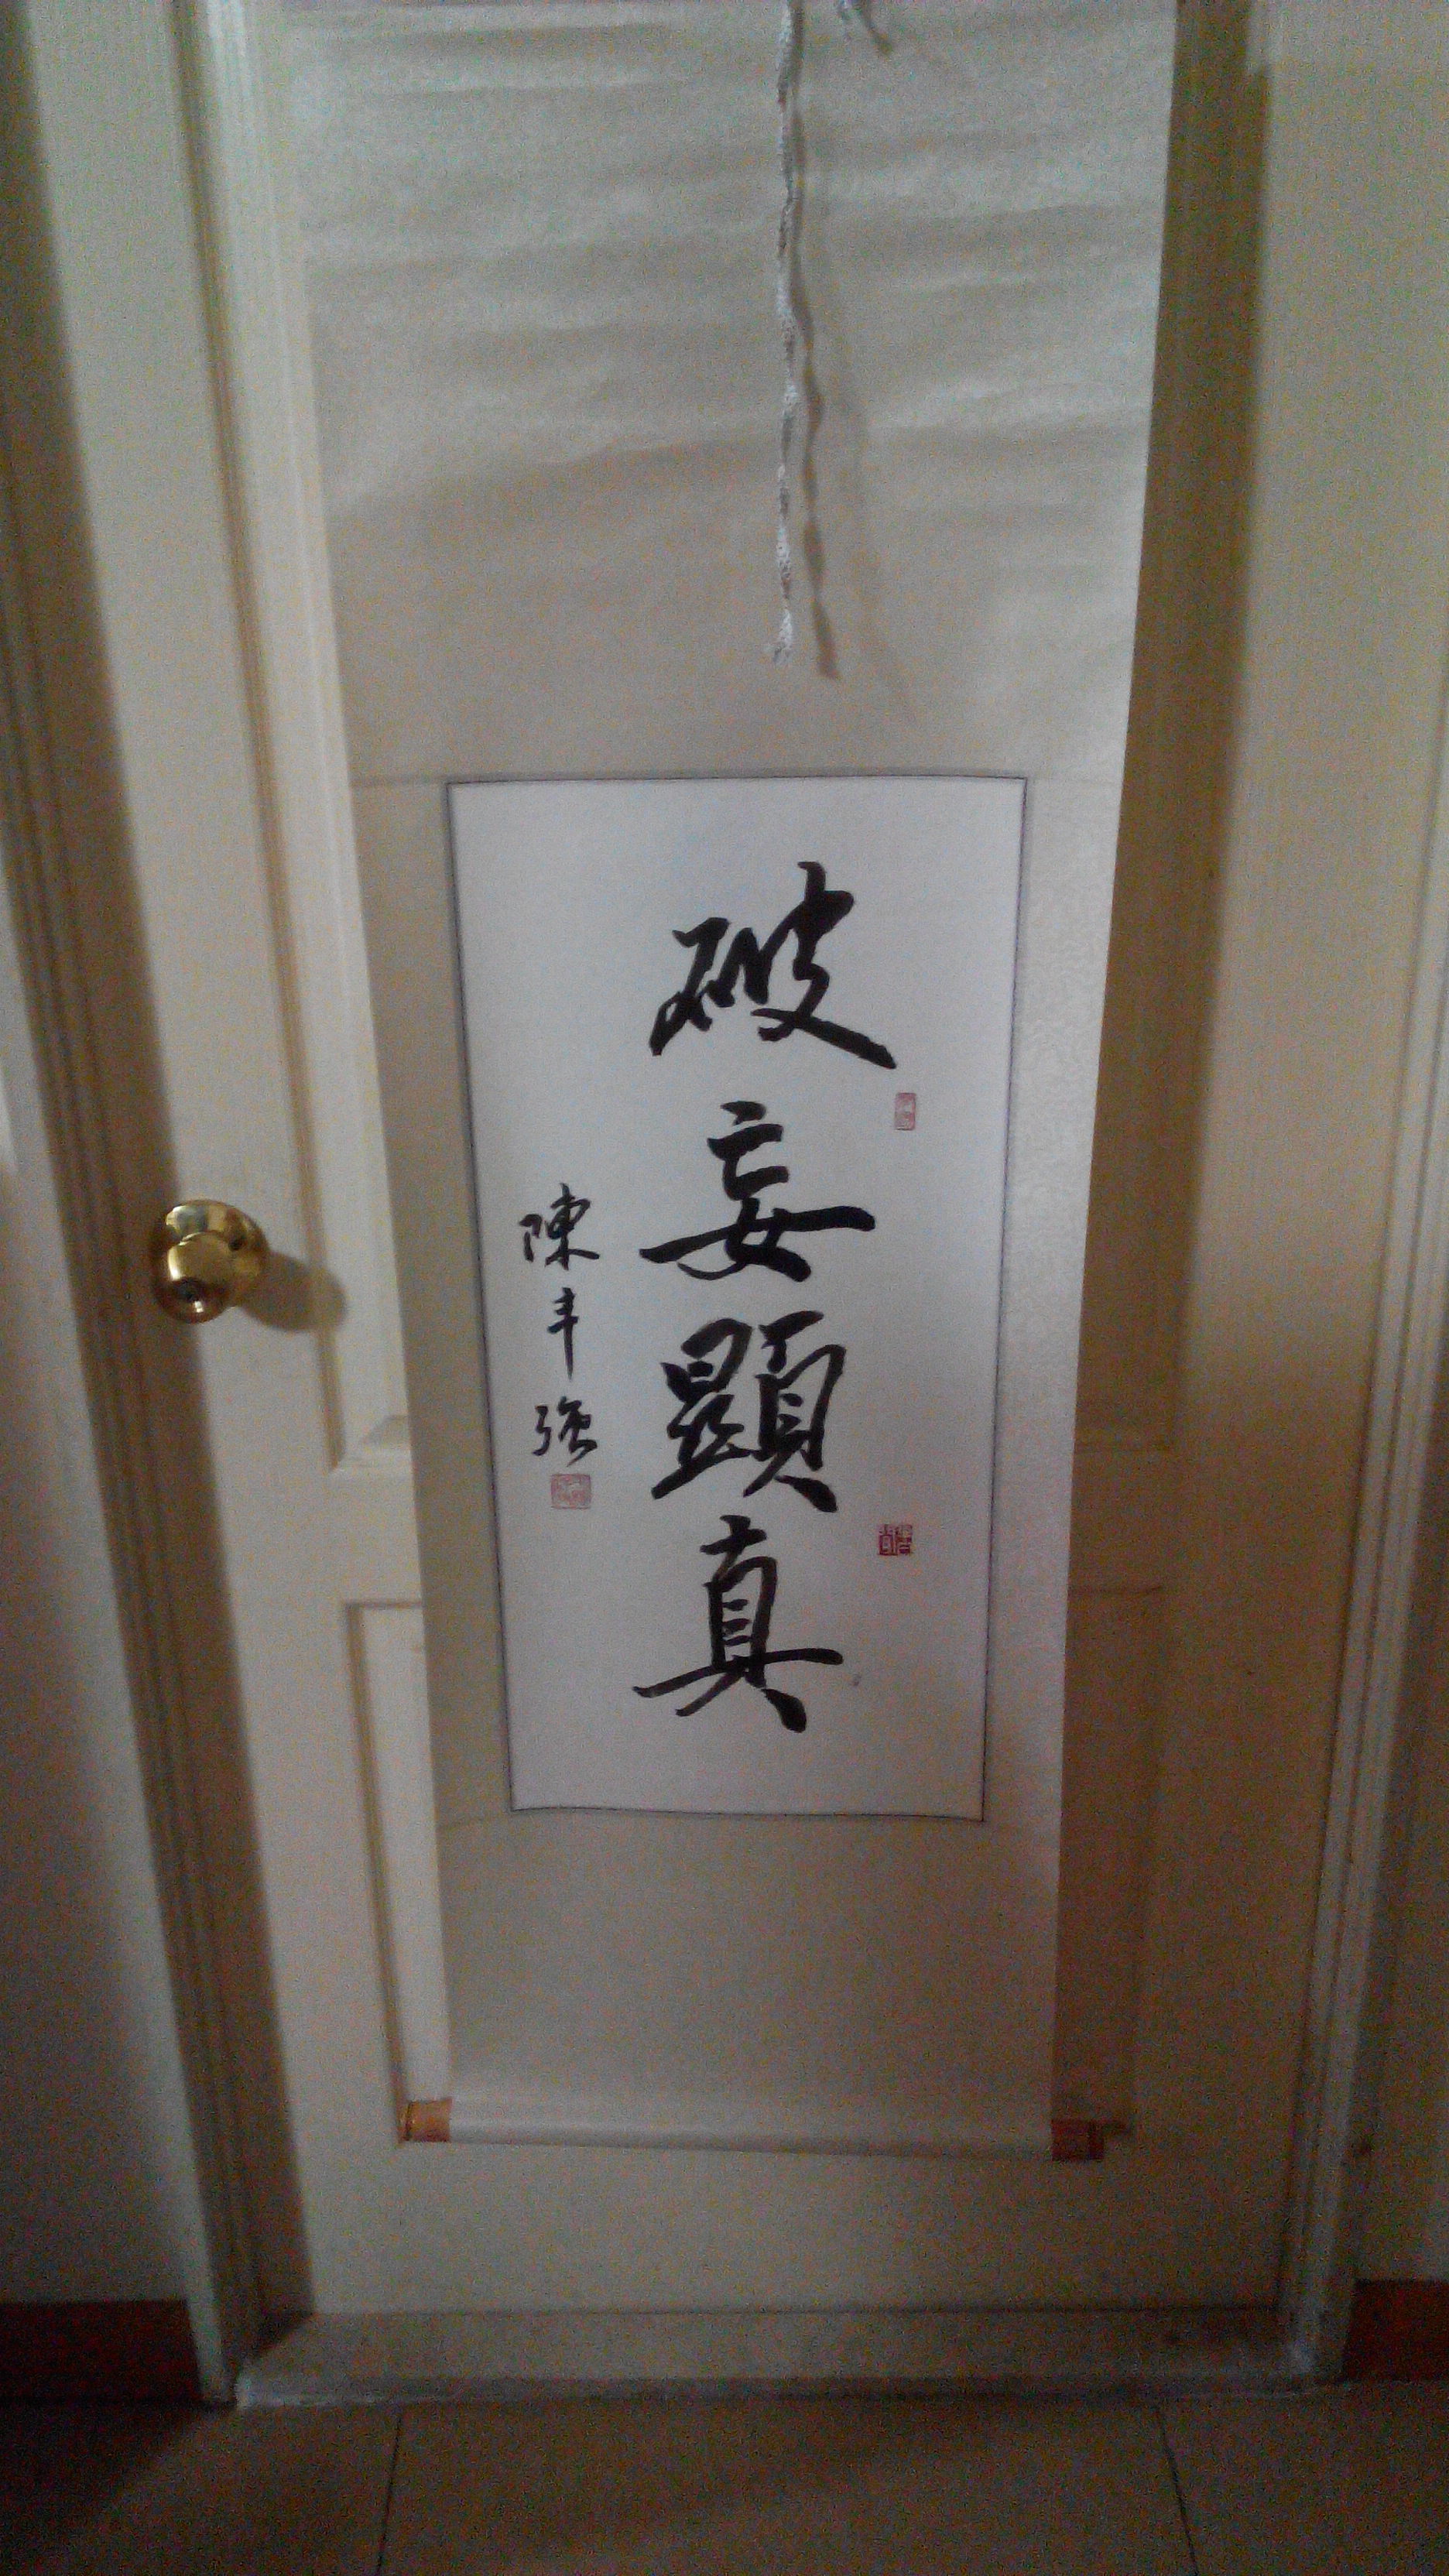 破妄顯真
陳丰强